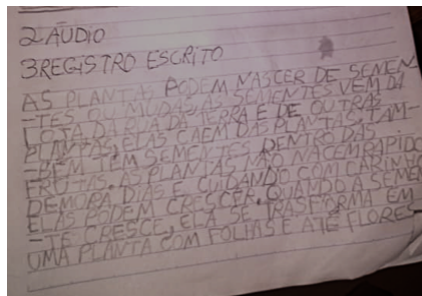 2 ÁUDIO
3 REGISTRO ESCRITO
AS PLANTAS PODEM NASCER DE SEMEN
-TES OU MUDAS, AS SEMENTES VEM DA
LOJA, DA RUA, DA TERRA E DE OUTRAS
PLANTAS, ELAS CAEM DAS PLANTAS. TAM-
-BÉM TEM SEMENTES DENTRO DAS
FRUTAS. AS PLANTAS NÃO NACEM RÁPIDO
DEMORA DIAS E CUIDANDO COM CARINHO
ELAS PODEM CRESCER. QUANDO A SEMEN
-TE CRESCE, ELA SE TRASFORMA EM
UMA PLANTA COM FOLIAS E ATÉ FLORES